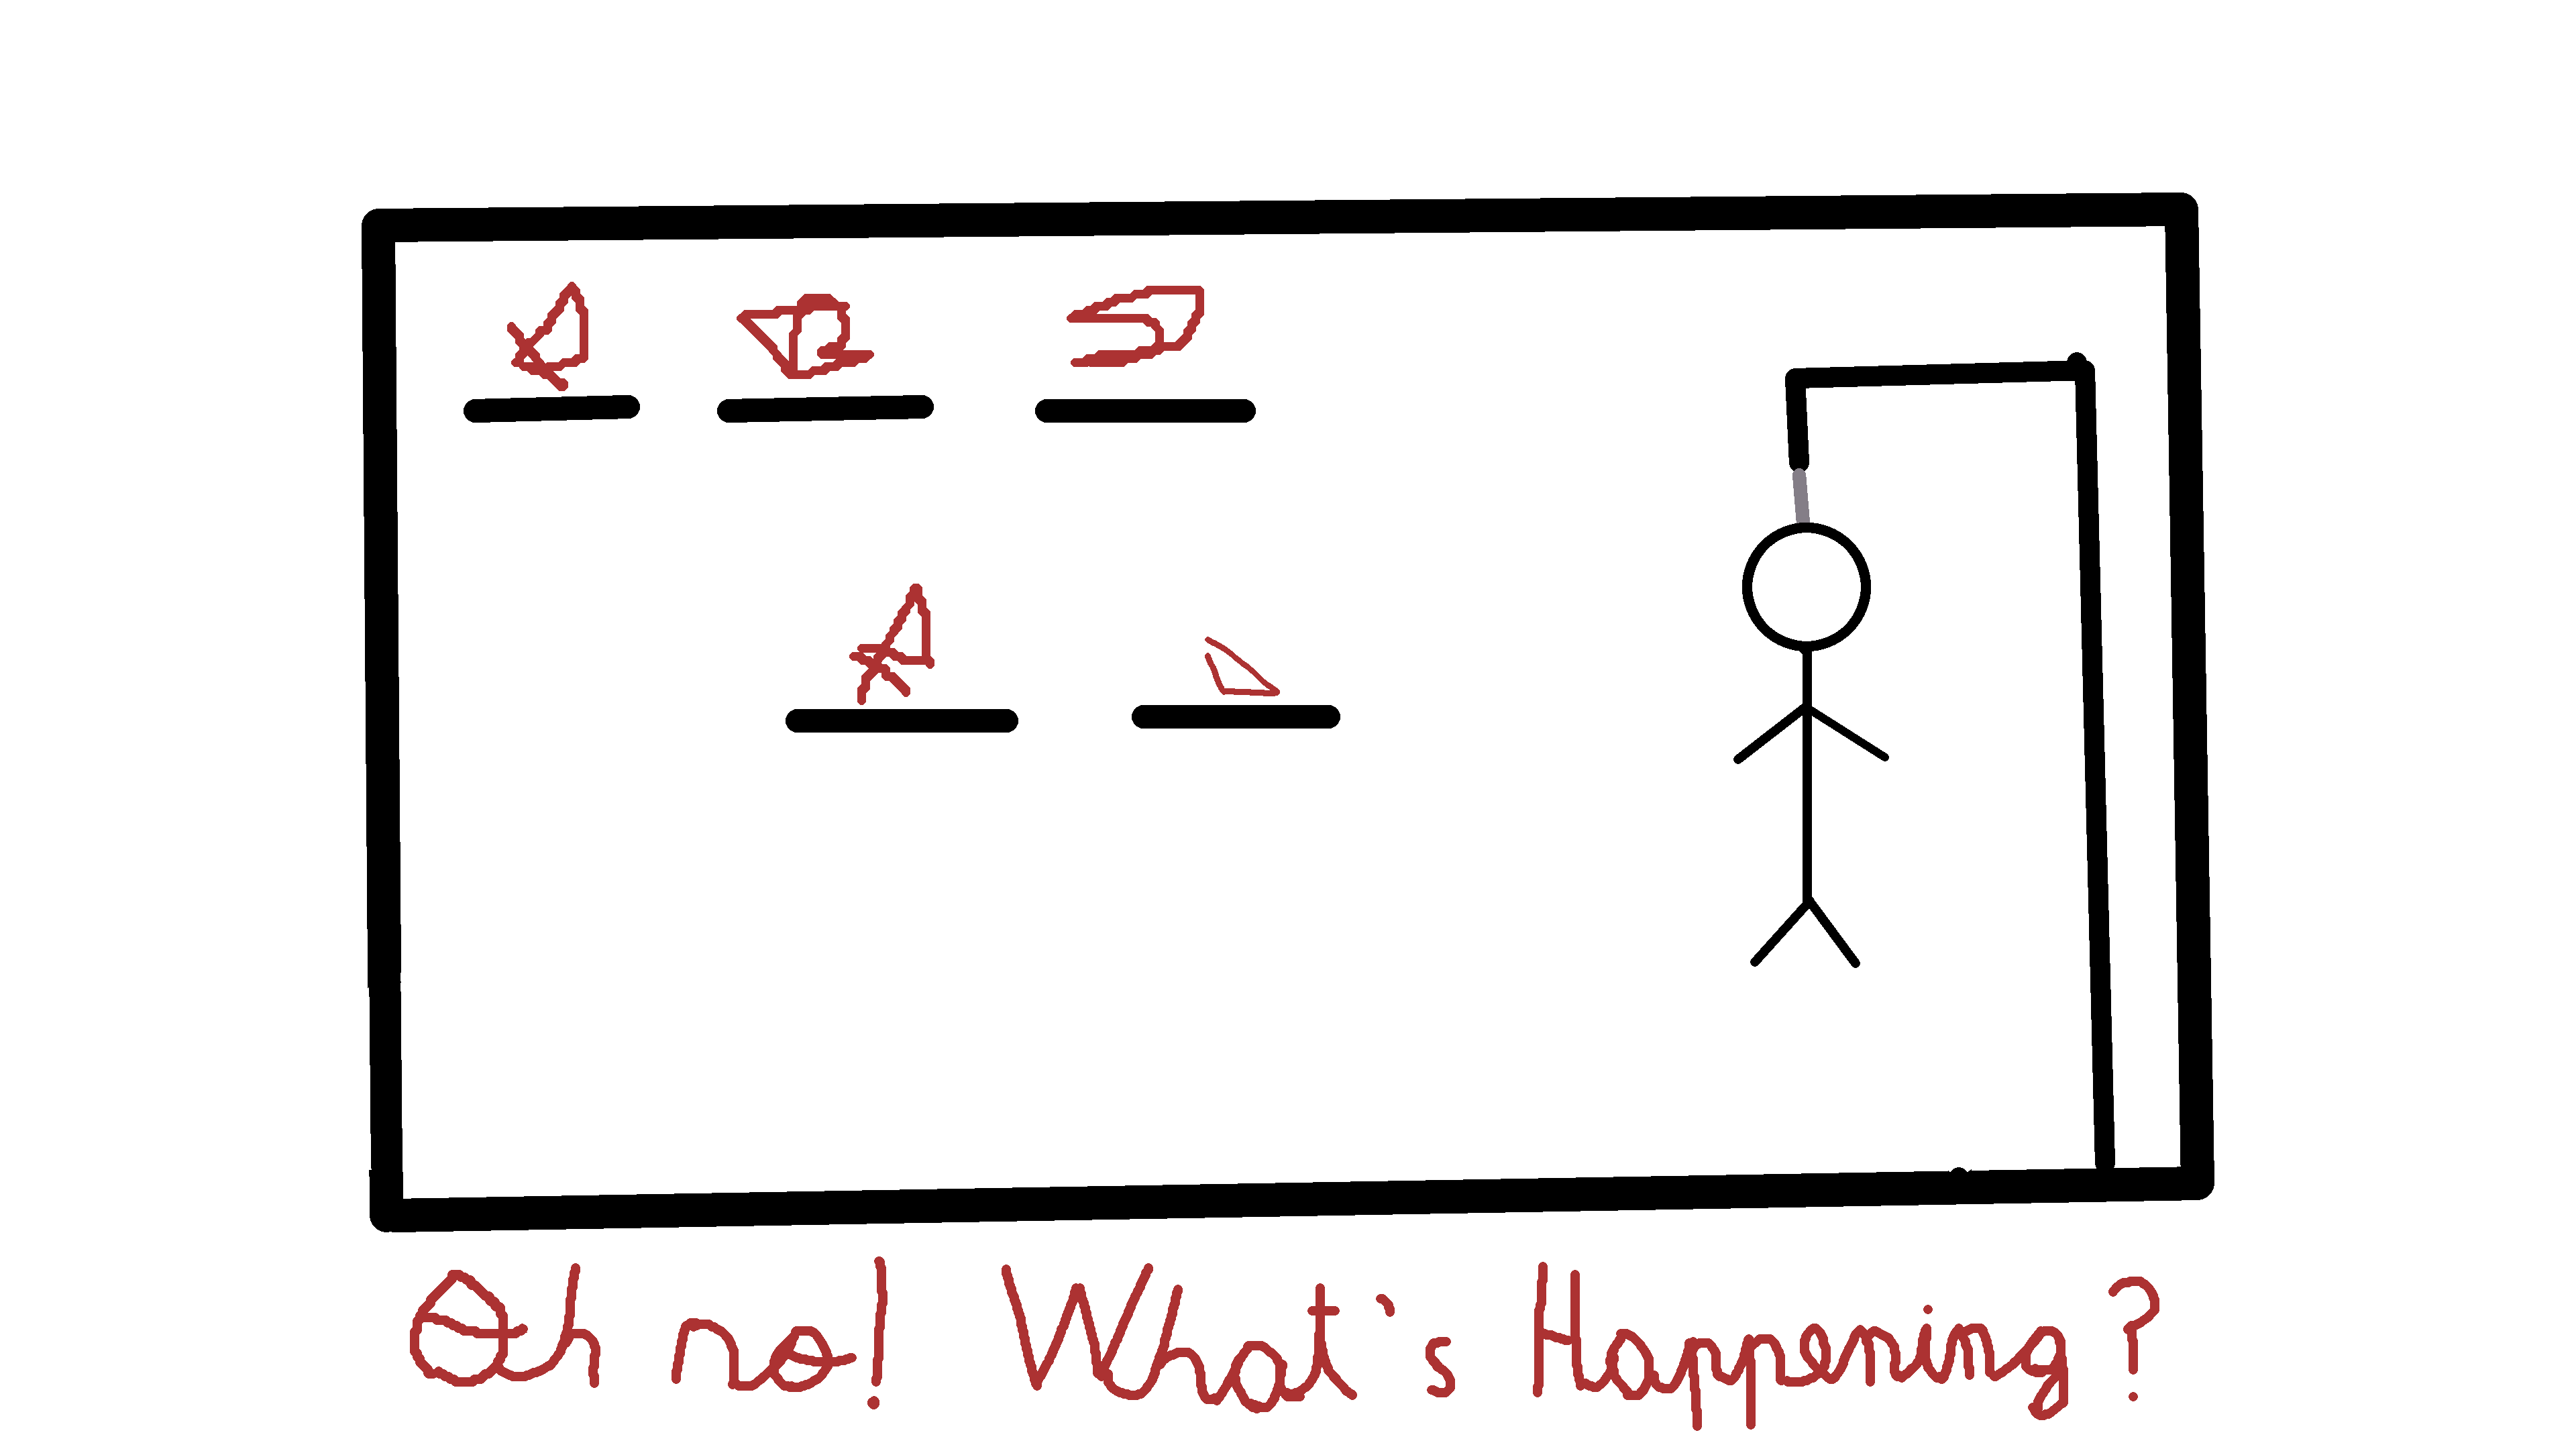 Oh no! What's Happening?